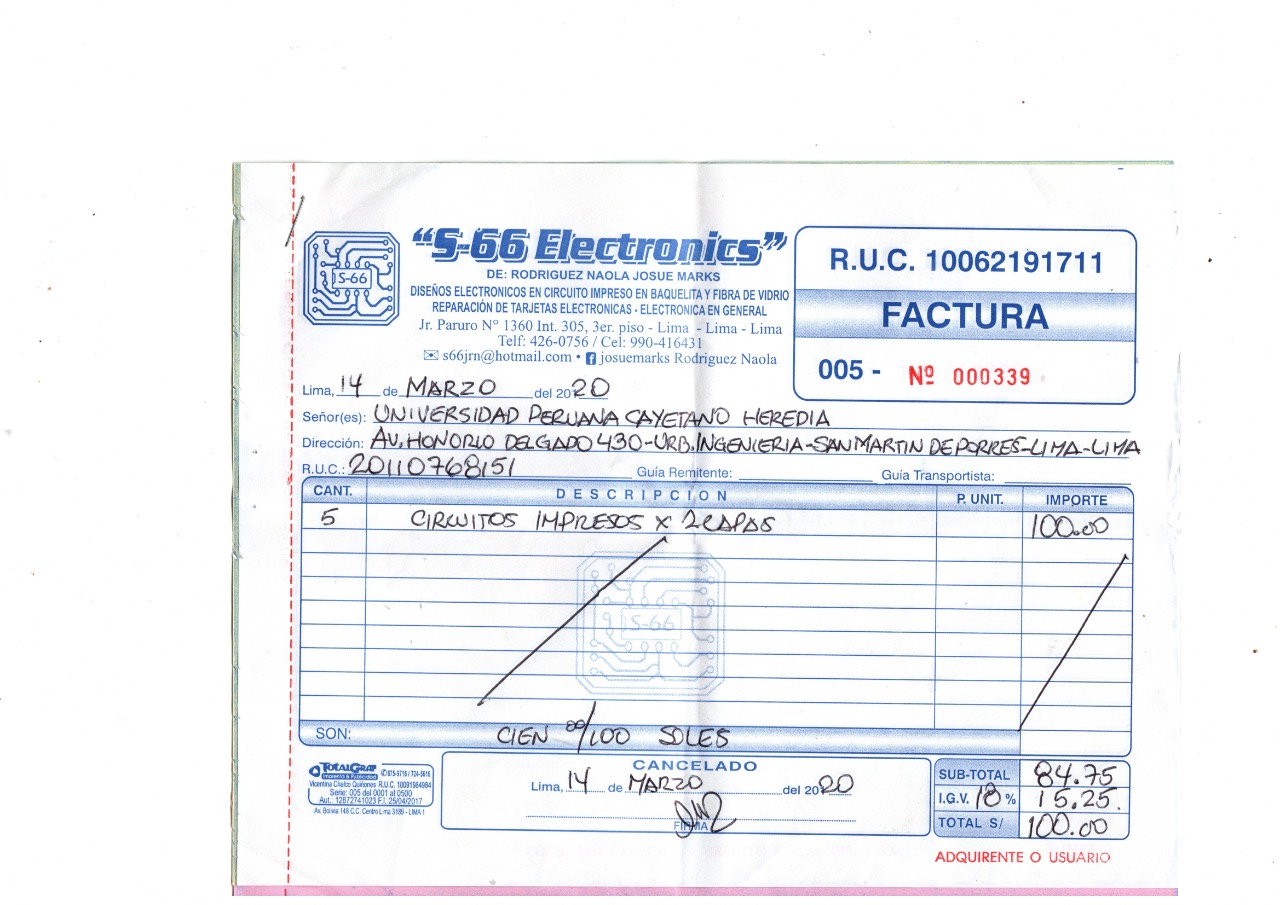 "S-66 Electronics"
DE: RODRIGUEZ NAOLA JOSUE MARKS
DISEÑOS ELECTRONICOS EN CIRCUITO IMPRESO EN BAQUELITA Y FIBRA DE VIDRIO
REPARACIÓN DE TARJETAS ELECTRONICAS - ELECTRONICA EN GENERAL
Jr. Paruro N° 1360 Int. 305, 3er. piso - Lima - Lima - Lima
Telf: 426-0756 / Cel: 990-416431
s66jrn@hotmail.com • josuemarks Rodriguez Naola
S-66
R.U.C. 10062191711
FACTURA
005 - Nº 000339
Lima, 14 de MARZO del 2020
Señor(es): UNIVERSIDAD PERUANA CAYETANO HEREDIA
Dirección: AV. HONORIO DELGADO 430-URB. INGENIERIA-SAN MARTIN DE PORRES-LIMA-LIMA
R.U.C.: 20110768151 Guía Remitente: Guía Transportista:
CANT. DESCRIPCION P. UNIT. IMPORTE
5 CIRCUITOS IMPRESOS X 2 CAPAS 100.00
S-66
SON: CIEN 00/100 SOLES
TOTALGRAF 675-5716 / 724-5616
Imprenta & Publicidad
Vicentina Chalco Quiñones R.U.C. 10091984984
Serie: 005 del 0001 al 0500
Aut.: 12872741023 F.I. 25/04/2017
Av. Bolivia 148 C.C. Centro Lima 3189 - LIMA 1
CANCELADO
Lima, 14 de MARZO del 2020
FIRMA
SUB-TOTAL 84.75
I.G.V. 18 % 15.25.
TOTAL S/ 100.00
ADQUIRENTE O USUARIO